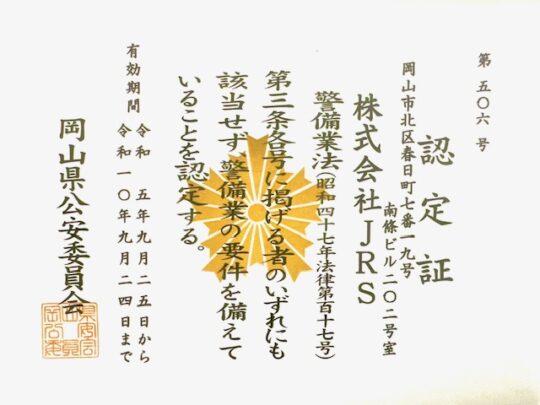 第五〇六号
認定証
岡山市北区春日町七番一九号
南條ビル二〇二号室
株式会社JRS
警備業法(昭和四十七年法律第百十七号)
第三条各号に掲げる者のいずれにも
該当せず、警備業の要件を備えて
いることを認定する。
有効期間
令和 五年九月二五日から
令和一〇年九月二四日まで
岡山県公安委員会